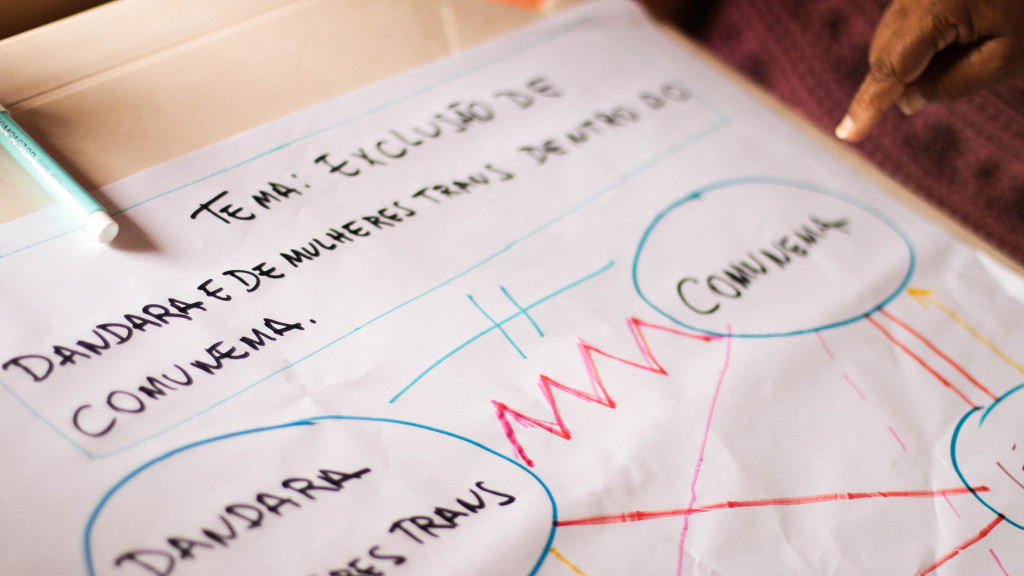 TEMA: EXCLUSÃO DE
DANDARA E DE MULHERES TRANS DENTRO DO
COMUNEMA.
COMUNEMA
DANDARA
TRANS